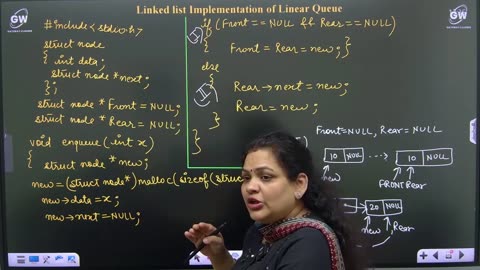 Linked list Implementation of Linear Queue
GW
GW
#include<stdio.h>
struct node
{ int data;
struct node *next;
};
struct node * Front = NULL;
struct node * Rear = NULL;
void enqueue (int x)
{
struct node *new;
new=(struct node*) malloc(sizeof(struc
new→data=x;
new→next=NULL;
if (Front == NULL && Rear == NULL)
{ Front = Rear = new; }
else
{
Rear→next = new;
Rear = new;
}
}
Front=NULL, Rear = NULL
10 NULL
new
10 NULL
FRONT Rear
20 NULL
new Rear